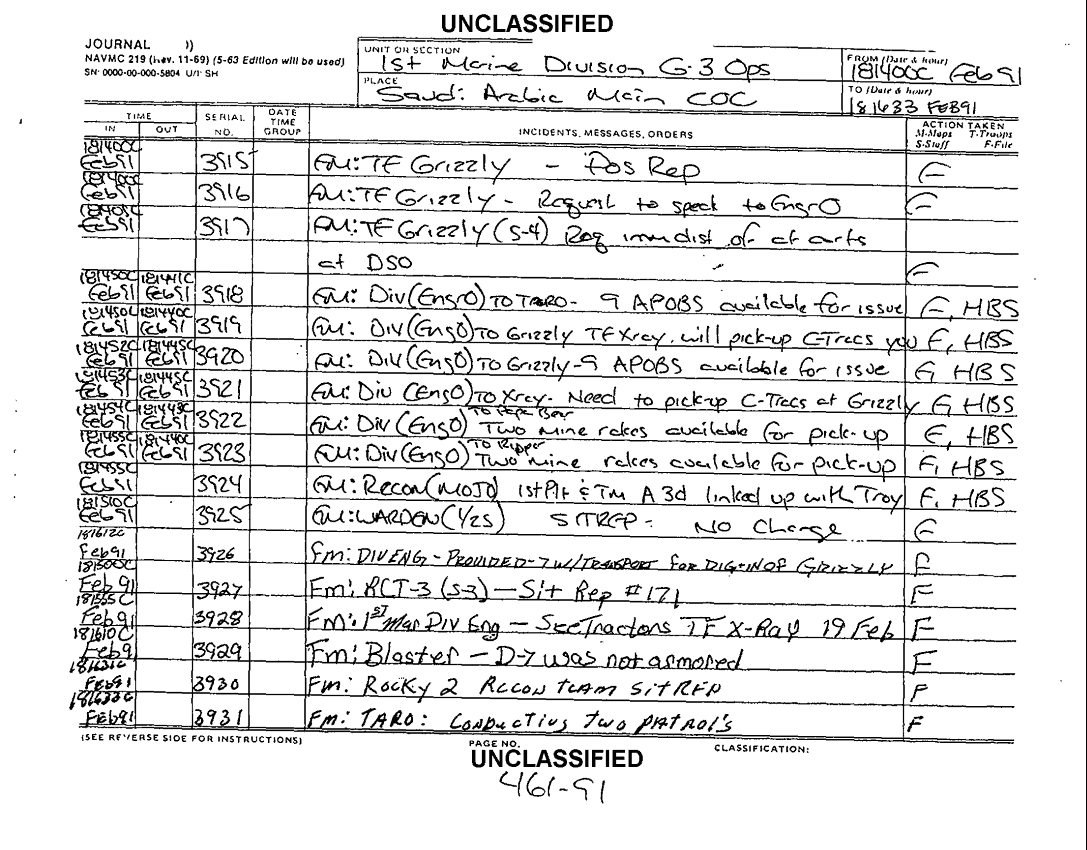 UNCLASSIFIED
JOURNAL ))
NAVMC 219 (Rev. 11-69) (5-63 Edition will be used)
SN: 0000-00-000-5804 U/I SH
UNIT OR SECTION
1st Marine Division G-3 Ops
PLACE
Saudi Arabia Main COC
FROM (Date & hour)
181400C Feb 91
TO (Date & hour)
181633 FEB91
TIME
IN OUT
SERIAL NO.
DATE TIME GROUP
INCIDENTS, MESSAGES, ORDERS
ACTION TAKEN
M-Maps T-Troops
S-Staff F-File
181400C Feb91 3915 FM: TF Grizzly - Pos Rep F
181400C Feb91 3916 FM: TF Grizzly - Request to speak to EngrO F
Feb91 3917 FM: TF Grizzly (S-4) Req immdist of at
at DSO F
181450C Feb91 181441C Feb91 3918 FM: Div (EngrO) TO TARO- 9 APOBS available for issue F, HBS
181450C Feb91 181440C Feb91 3919 FM: Div (EngO) TO Grizzly TF Xray will pick-up C-Tracs you F, HBS
181452C Feb91 181445C Feb91 3920 FM: Div (EngO) TO Grizzly-9 APOBS available for issue F, HBS
181453C Feb91 181445C Feb91 3921 FM: Div (EngO) TO Xray- Need to pick-up C-Tracs at Grizzly F, HBS
181454C Feb91 181443C Feb91 3922 FM: Div (EngO) TO Papa Bear Two mine rakes available for pick-up F, HBS
181455C Feb91 181440C Feb91 3923 FM: Div (EngO) TO Ripper Two mine rakes available for pick-up F, HBS
181455C Feb91 3924 FM: Recon (MOJO) 1st Plt & Tm A 3d linked up with Troy F, HBS
181510C Feb91 3925 FM: WARDEN (1/25) SITREP - NO Change F
181612C Feb91 3926 Fm: DIV ENG - PROVIDED D-7 W/TRANSPORT FOR DIG-IN OF GRIZZLY F
181500C Feb 91 3927 Fm: RCT-3 (S-3) - Sit Rep #171 F
181555C Feb91 3928 Fm: 1st Mar Div Eng - SeeTractors TF X-Ray 19 Feb F
181610C Feb9 3929 Fm: Blaster - D-7 was not armored F
181631C Feb91 3930 Fm: Rocky 2 Recon team sitrep F
181633C Feb91 3931 Fm: TARO: Conducting two patrol's F
(SEE REVERSE SIDE FOR INSTRUCTIONS)
PAGE NO.
CLASSIFICATION:
UNCLASSIFIED
461-91